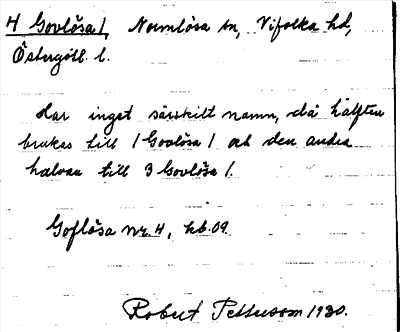 4 Govlösa 1, Normlösa sn, Vifolka hd,
Östergötl. l.
Har inget särskilt namn, då hälften
brukas till 1 Govlösa 1 och den andra
halvan till 3 Govlösa 1.
Goflösa nr. 4, kb. 09.
Robert Pettersson 1930.